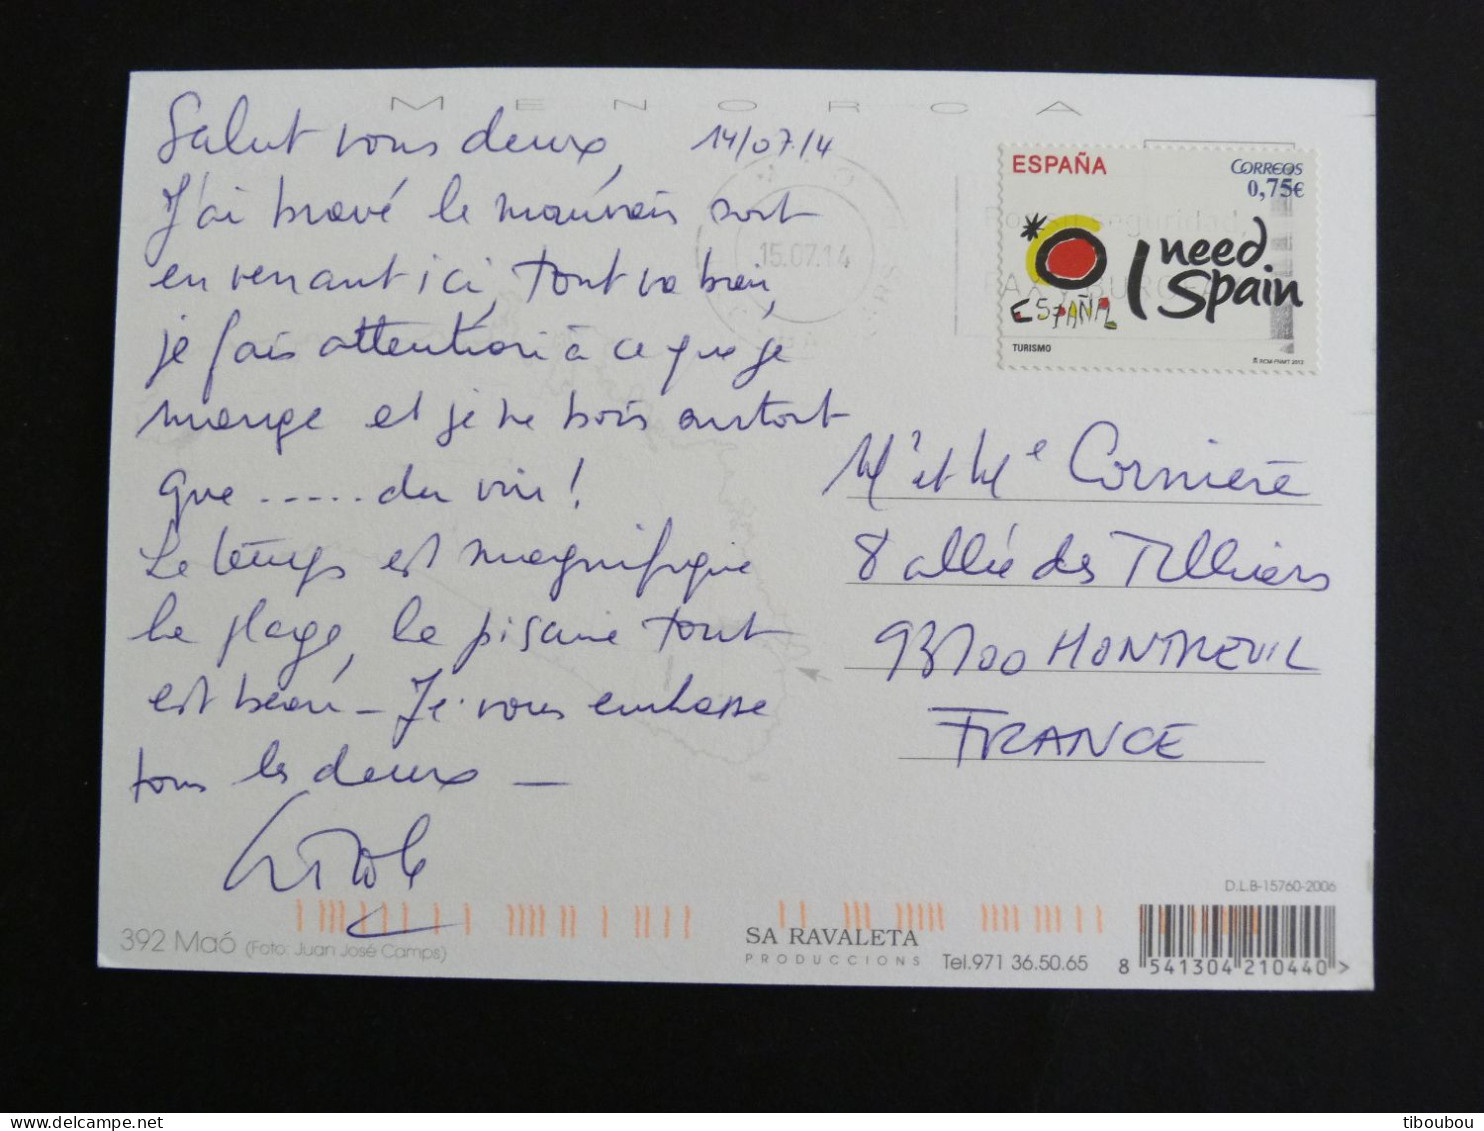 MENORCA
Salut vous deux, 14/07/14
J'ai bravé le mauvais sort
en venant ici, tout va bien,
je fais attention à ce que je
mange et je ne bois surtout
que ..... du vin !
Le temps est magnifique
la plage, la piscine tout
est beau - Je vous embrasse
tous les deux -
ESPAÑA
CORREOS
0,75€
I need Spain
ESPAÑA
TURISMO
RCM-FNMT 2012
15.07.14
Por su seguridad,
Mr et Me Cornière
8 allée des Tilliers
93100 MONTREUIL
FRANCE
D.L.B-15760-2006
392 Maó (Foto: Juan José Camps)
SA RAVALETA
PRODUCCIONS
Tel. 971 36.50.65
8 541304 210440 >
tiboubou